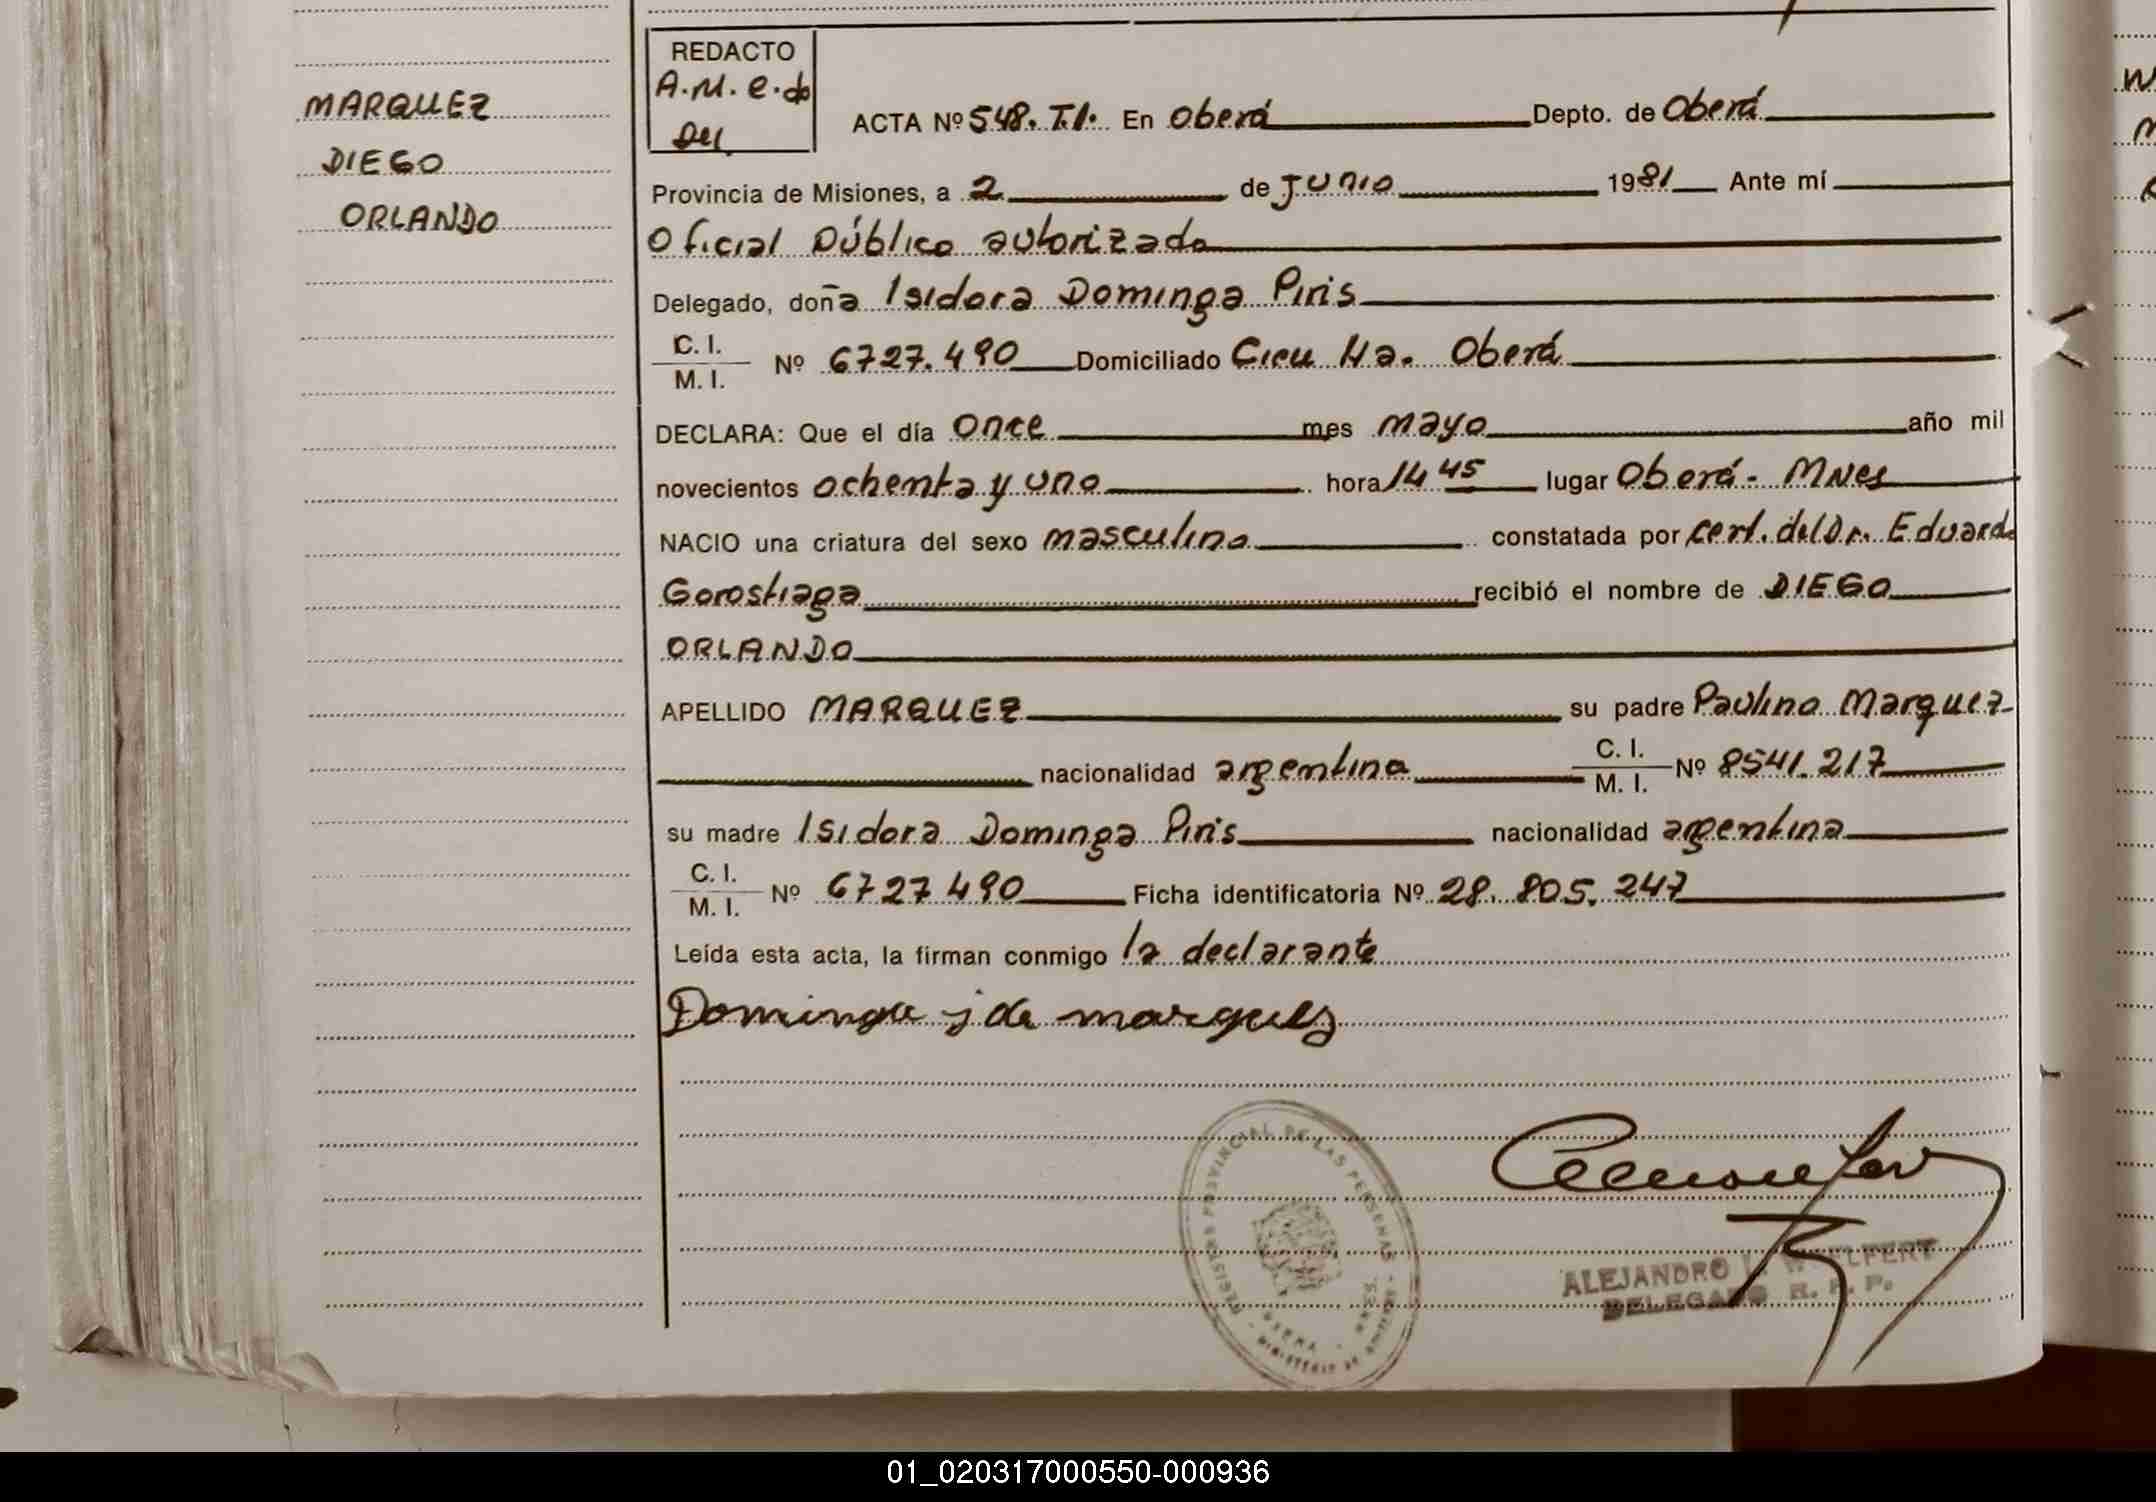 MARQUEZ
DIEGO
ORLANDO
REDACTO
A.M. e.do
ACTA Nº 548. T.1. En Oberá Depto. de Oberá
Provincia de Misiones, a 2 de Junio 1981 Ante mí
Oficial Público autorizado
Delegado, doña Isidora Dominga Piris
C. I.
M. I. Nº 6727.490 Domiciliado Cien Ha. Oberá
DECLARA: Que el día once mes mayo año mil
novecientos ochenta y uno hora 14 45 lugar Oberá - Mnes
NACIO una criatura del sexo masculino constatada por cert. del Dr. Eduardo
Gorostiaga recibió el nombre de DIEGO
ORLANDO
APELLIDO MARQUEZ su padre Paulino Marquez
nacionalidad argentina C. I. M. I. Nº 8541.217
su madre Isidora Dominga Piris nacionalidad argentina
C. I.
M. I. Nº 6727490 Ficha identificatoria Nº 28.805.247
Leída esta acta, la firman conmigo la declarante
Dominga j de marquez
REGISTRO PROVINCIAL DE LAS PERSONAS
MINISTERIO DE
OBERA
ALEJANDRO
DELEGADO R. P. P.
01_020317000550-000936